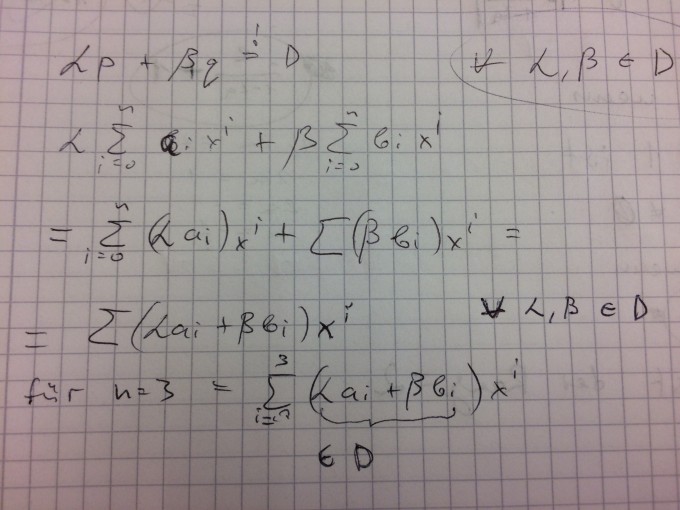 αp + βq =! D ∀ α, β ∈ D
α ∑_{i=0}^{n} a_i x^i + β ∑_{i=0}^{n} b_i x^i
= ∑_{i=0}^{n} (α a_i) x^i + ∑ (β b_i) x^i =
= ∑ (α a_i + β b_i) x^i ∀ α, β ∈ D
für n=3 = ∑^{3} (α a_i + β b_i) x^i
∈ D